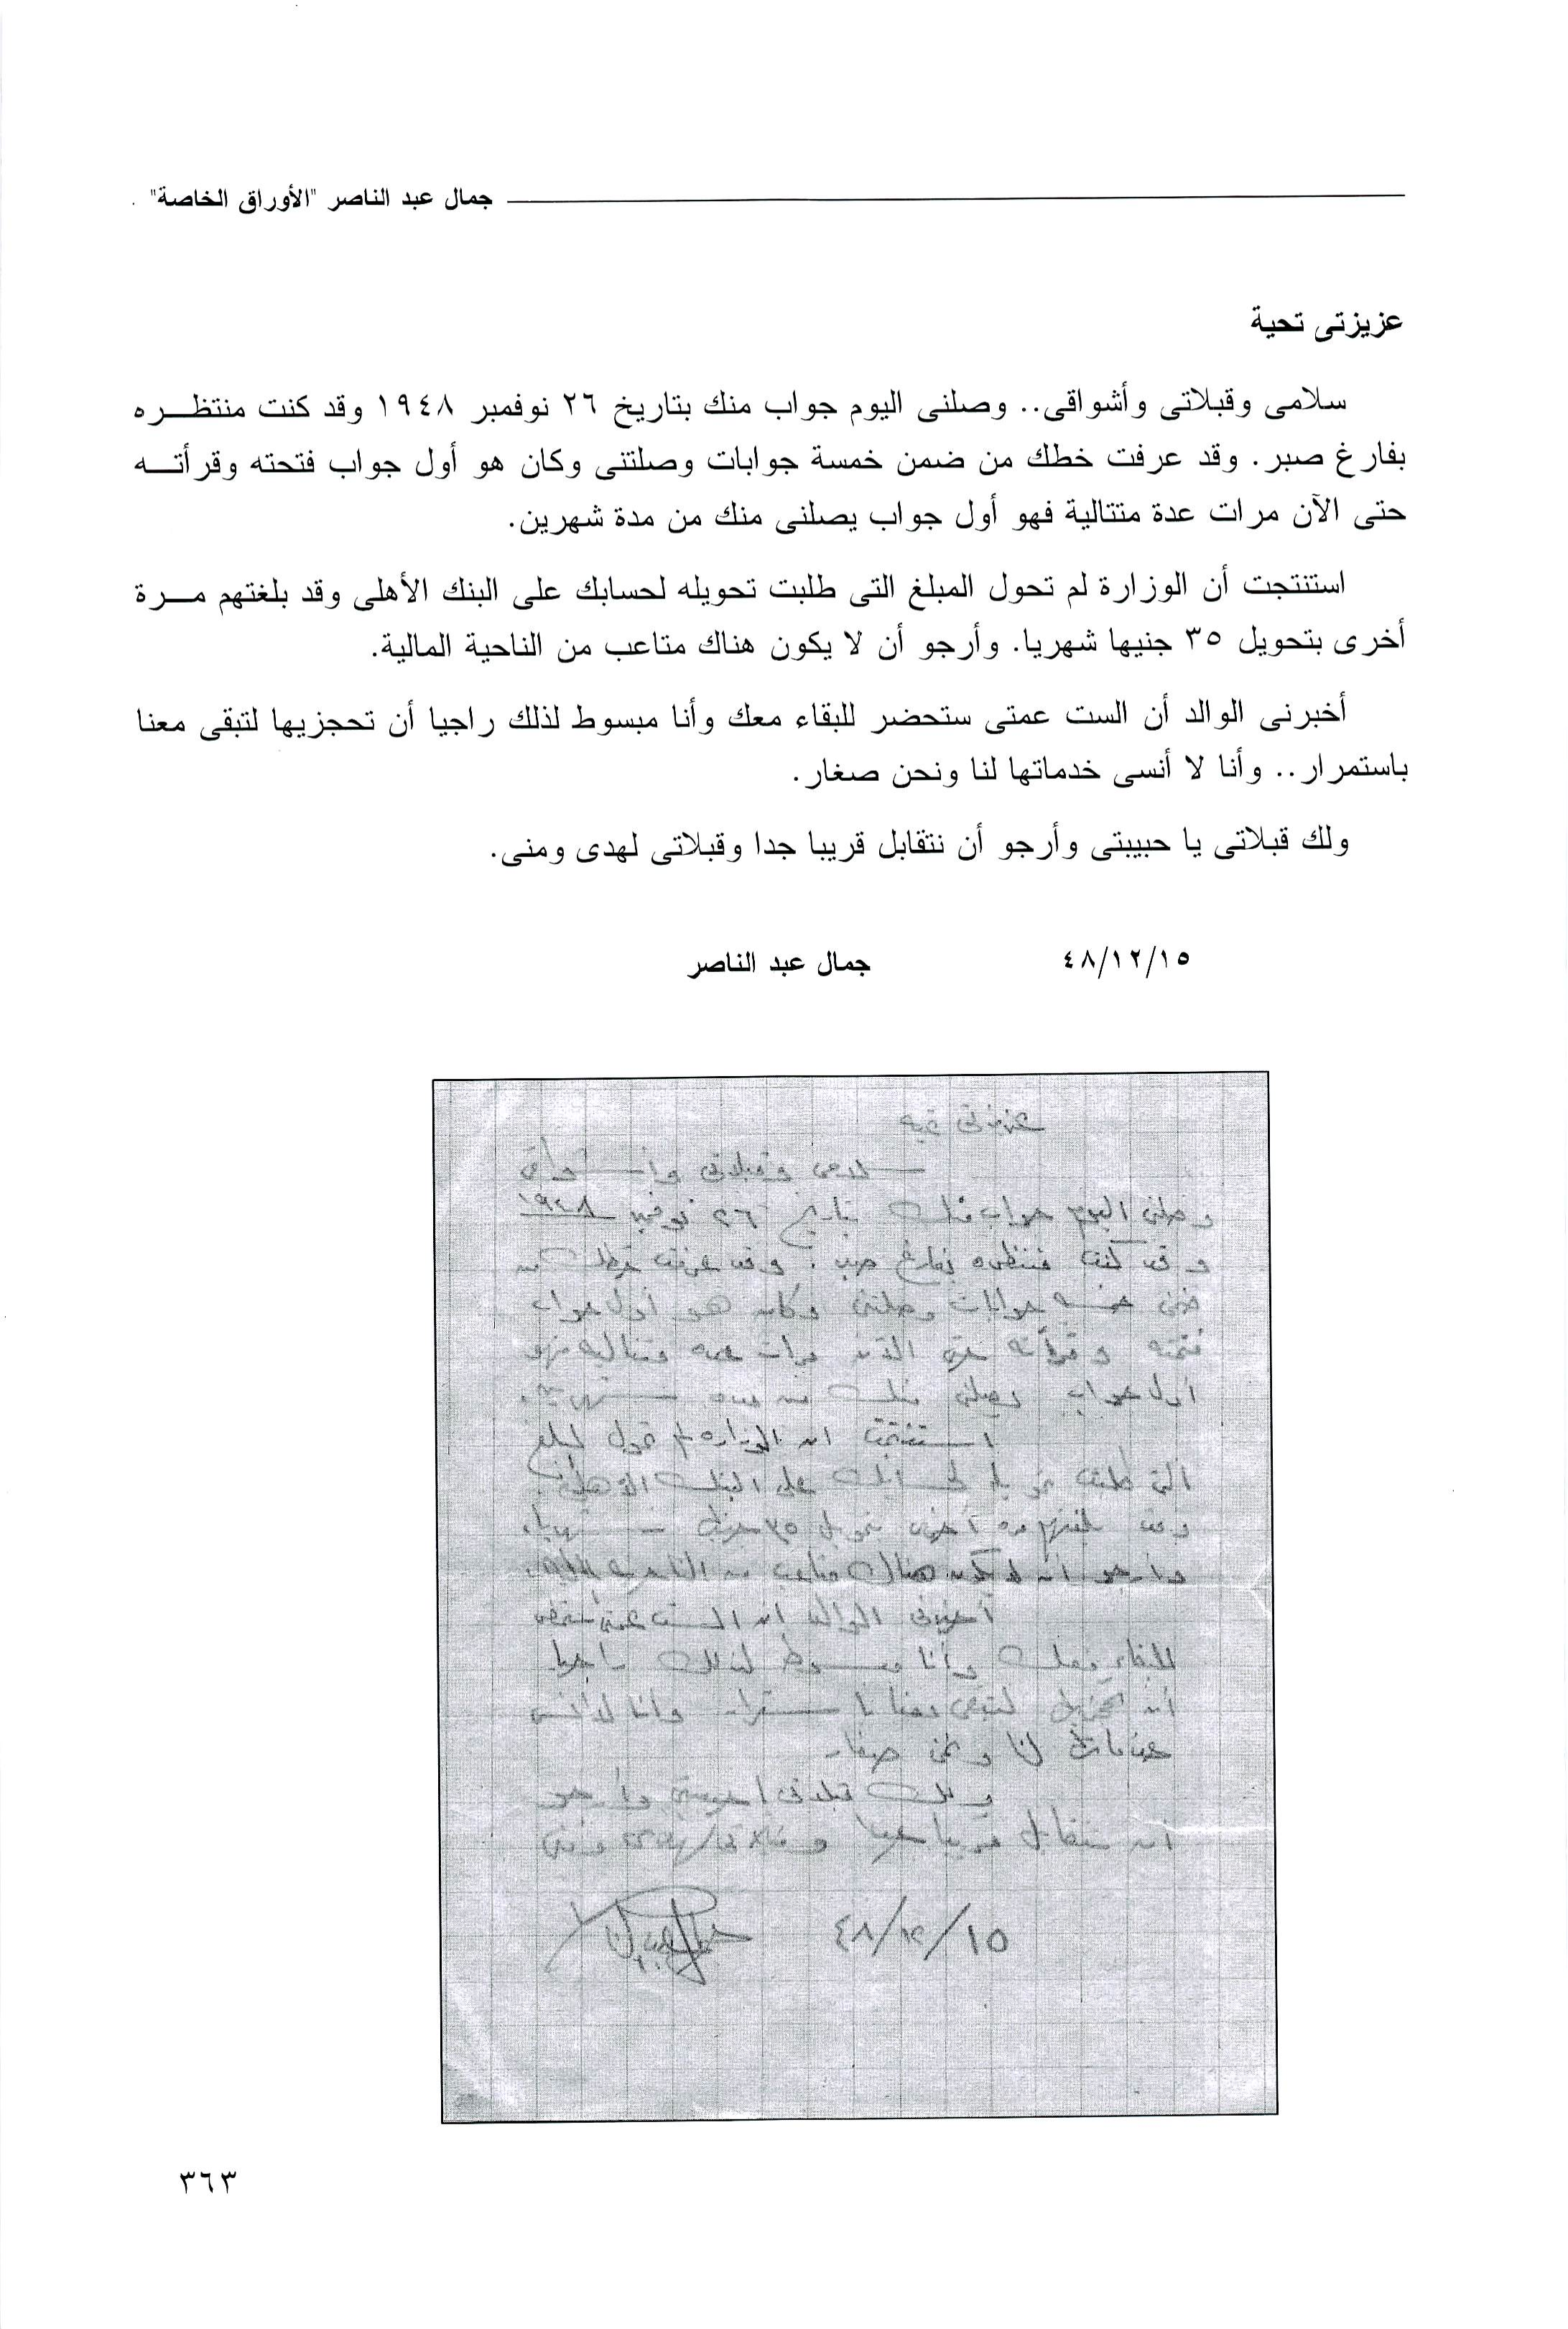 جمال عبد الناصر "الأوراق الخاصة"
عزيزتى تحية
سلامى وقبلاتى وأشواقى.. وصلنى اليوم جواب منك بتاريخ ٢٦ نوفمبر ١٩٤٨ وقد كنت منتظره
بفارغ صبر. وقد عرفت خطك من ضمن خمسة جوابات وصلتنى وكان هو أول جواب فتحته وقرأته
حتى الآن مرات عدة متتالية فهو أول جواب يصلنى منك من مدة شهرين.
استنتجت أن الوزارة لم تحول المبلغ التى طلبت تحويله لحسابك على البنك الأهلى وقد بلغتهم مرة
أخرى بتحويل ٣٥ جنيها شهريا. وأرجو أن لا يكون هناك متاعب من الناحية المالية.
أخبرنى الوالد أن الست عمتى ستحضر للبقاء معك وأنا مبسوط لذلك راجيا أن تحجزيها لتبقى معنا
باستمرار.. وأنا لا أنسى خدماتها لنا ونحن صغار.
ولك قبلاتى يا حبيبتى وأرجو أن نتقابل قريبا جدا وقبلاتى لهدى ومنى.
٤٨/١٢/١٥ جمال عبد الناصر
عزيزتى تحيه
سلامى وقبلاتى وأشواقى
وصلنى اليوم جواب منك بتاريخ ٢٦ نوفمبر ١٩٤٨
وقد كنت منتظره بفارغ صبر . وقد عرفت خطك من
ضمن خمسه جوابات وصلتنى وكان هو أول جواب
فتحته وقرأته حتى الآن مرات عده متتاليه فهو
أول جواب يصلنى منك من مده شهرين .
استنتجت ان الوزاره لم تحول المبلغ
التى طلبت تحويله لحسابك على البنك الأهلى .
وقد بلغتهم مره أخرى بتحويل ٣٥ جنيها شهريا .
وأرجو أن لا يكون هناك متاعب من الناحيه الماليه .
أخبرنى الوالد ان الست عمتى ستحضر
للبقاء معك وأنا مبسوط لذلك راجيا
أن تحجزيها لتبقى معنا باستمرار وأنا لا أنسى
خدماتها لنا ونحن صغار
ولك قبلاتى يا حبيبتى وأرجو
ان نتقابل قريبا جدا وقبلاتى لهدى ومنى
٤٨/١٢/١٥ جمال عبد الناصر
٣٦٣